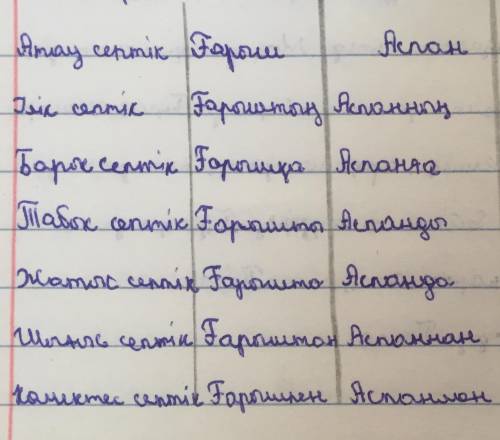 Атау септік Ғарыш Аспан
Ілік септік Ғарыштың Аспанның
Барыс септік Ғарышқа Аспанға
Табыс септік Ғарышты Аспанды
Жатыс септік Ғарышта Аспанда
Шығыс септік Ғарыштан Аспаннан
Көмектес септік Ғарышпен Аспанмен